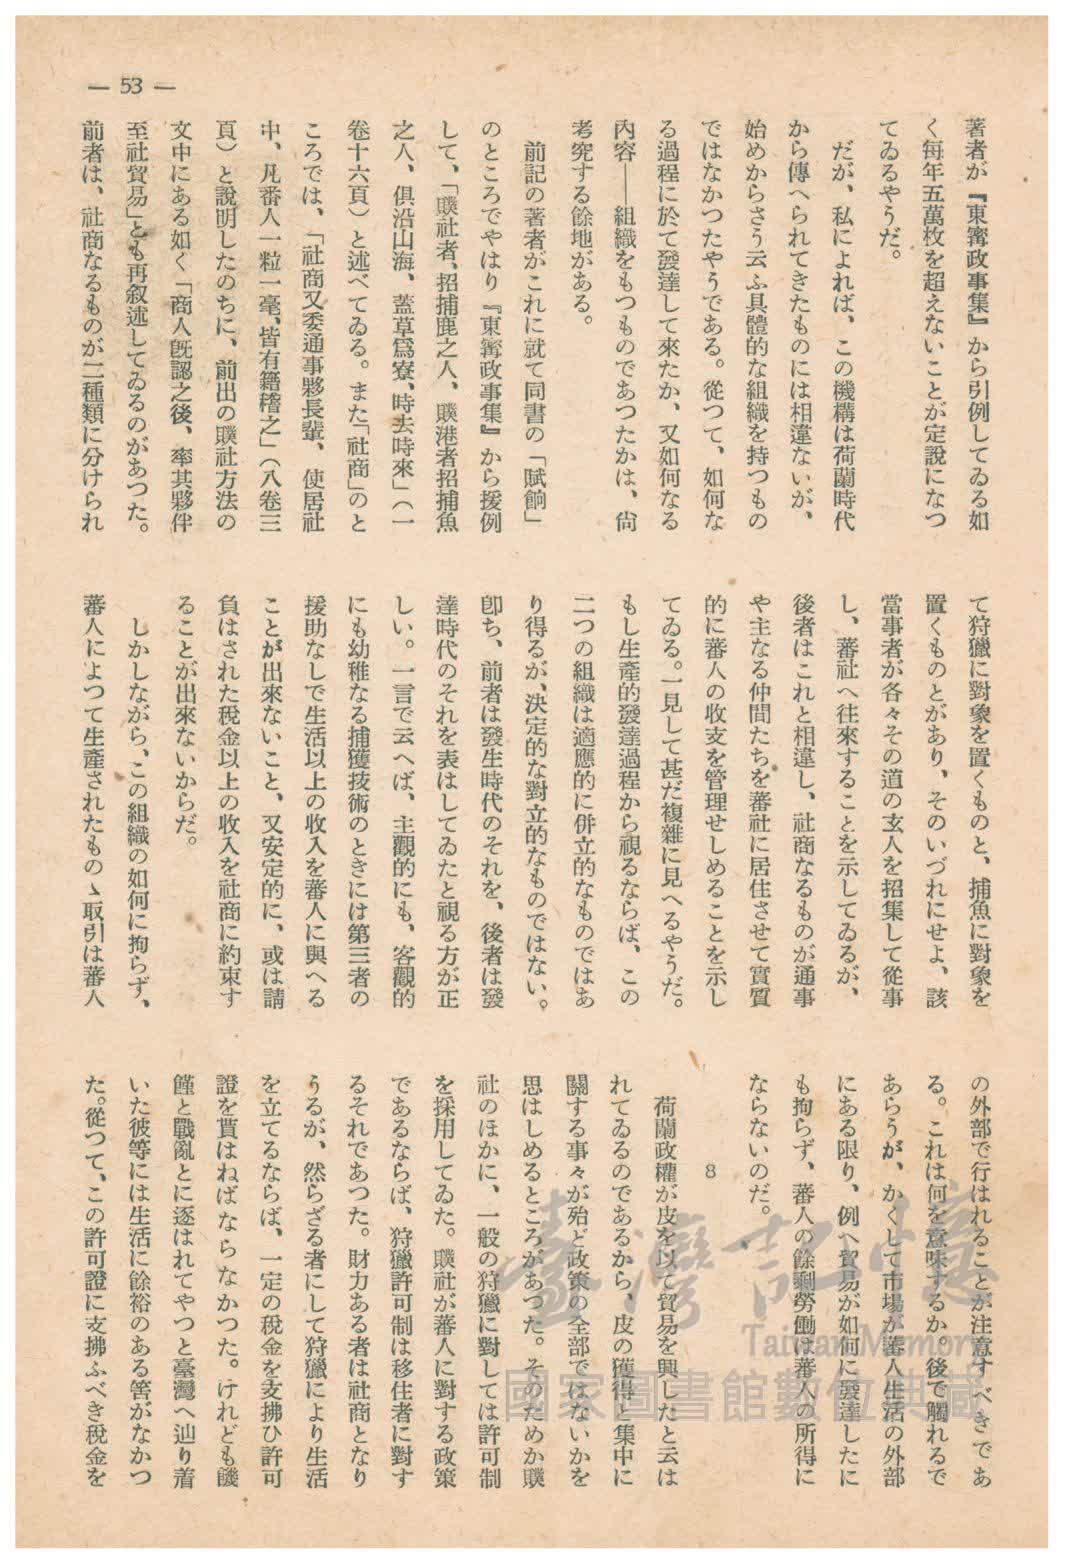 — 53 —
著者が『東寗政事集』から引例してゐる如
く毎年五萬枚を超えないことが定說になつ
てゐるやうだ。
だが、私によれば、この機構は荷蘭時代
から傳へられてきたものには相違ないが、
始めからさう云ふ具體的な組織を持つもの
ではなかつたやうである。從つて、如何な
る過程に於て發達して來たか、又如何なる
內容――組織をもつものであつたかは、尙
考究する餘地がある。
前記の著者がこれに就て同書の「賦餉」
のところでやはり『東寗政事集』から援例
して、「贌社者、招捕鹿之人、贌港者招捕魚
之人、俱沿山海、蓋草爲寮、時去時來」（一
卷十六頁）と述べてゐる。また「社商」のと
ころでは、「社商又委通事夥長輩、使居社
中、凡番人一粒一毫、皆有籍稽之」（八卷三
頁）と說明したのちに、前出の贌社方法の
文中にある如く「商人旣認之後、率其夥伴
至社貿易」とも再叙述してゐるのがあつた。
前者は、社商なるものが二種類に分けられ
て狩獵に對象を置くものと、捕魚に對象を
置くものとがあり、そのいづれにせよ、該
當事者が各々その道の玄人を招集して從事
し、蕃社へ往來することを示してゐるが、
後者はこれと相違し、社商なるものが通事
や主なる仲間たちを蕃社に居住させて實質
的に蕃人の收支を管理せしめることを示し
てゐる。一見して甚だ複雜に見へるやうだ。
もし生產的發達過程から視るならば、この
二つの組織は適應的に併立的なものではあ
り得るが、決定的な對立的なものではない。
卽ち、前者は發生時代のそれを、後者は發
達時代のそれを表はしてゐたと視る方が正
しい。一言で云へば、主觀的にも、客觀的
にも幼稚なる捕獲技術のときには第三者の
援助なしで生活以上の收入を蕃人に與へる
ことが出來ないこと、又安定的に、或は請
負はされた稅金以上の收入を社商に約束す
ることが出來ないからだ。
しかしながら、この組織の如何に拘らず、
蕃人によつて生產されたものゝ取引は蕃人
の外部で行はれることが注意すべきであ
る。これは何を意味するか。後で觸れるで
あらうが、かくして市場が蕃人生活の外部
にある限り、例へ貿易が如何に發達したに
も拘らず、蕃人の餘剩勞働は蕃人の所得に
ならないのだ。
8
荷蘭政權が皮を以て貿易を興したと云は
れてゐるのであるから、皮の獲得と集中に
關する事々が殆ど政策の全部ではないかを
思はしめるところがあつた。そのためか贌
社のほかに、一般の狩獵に對しては許可制
を採用してゐた。贌社が蕃人に對する政策
であるならば、狩獵許可制は移住者に對す
るそれであつた。財力ある者は社商となり
うるが、然らざる者にして狩獵により生活
を立てるならば、一定の稅金を支拂ひ許可
證を貰はねばならなかつた。けれども饑
饉と戰亂とに逐はれてやつと臺灣へ辿り着
いた彼等には生活に餘裕のある筈がなかつ
た。從つて、この許可證に支拂ふべき稅金を
臺灣記憶
Taiwan Memory
國家圖書館數位典藏